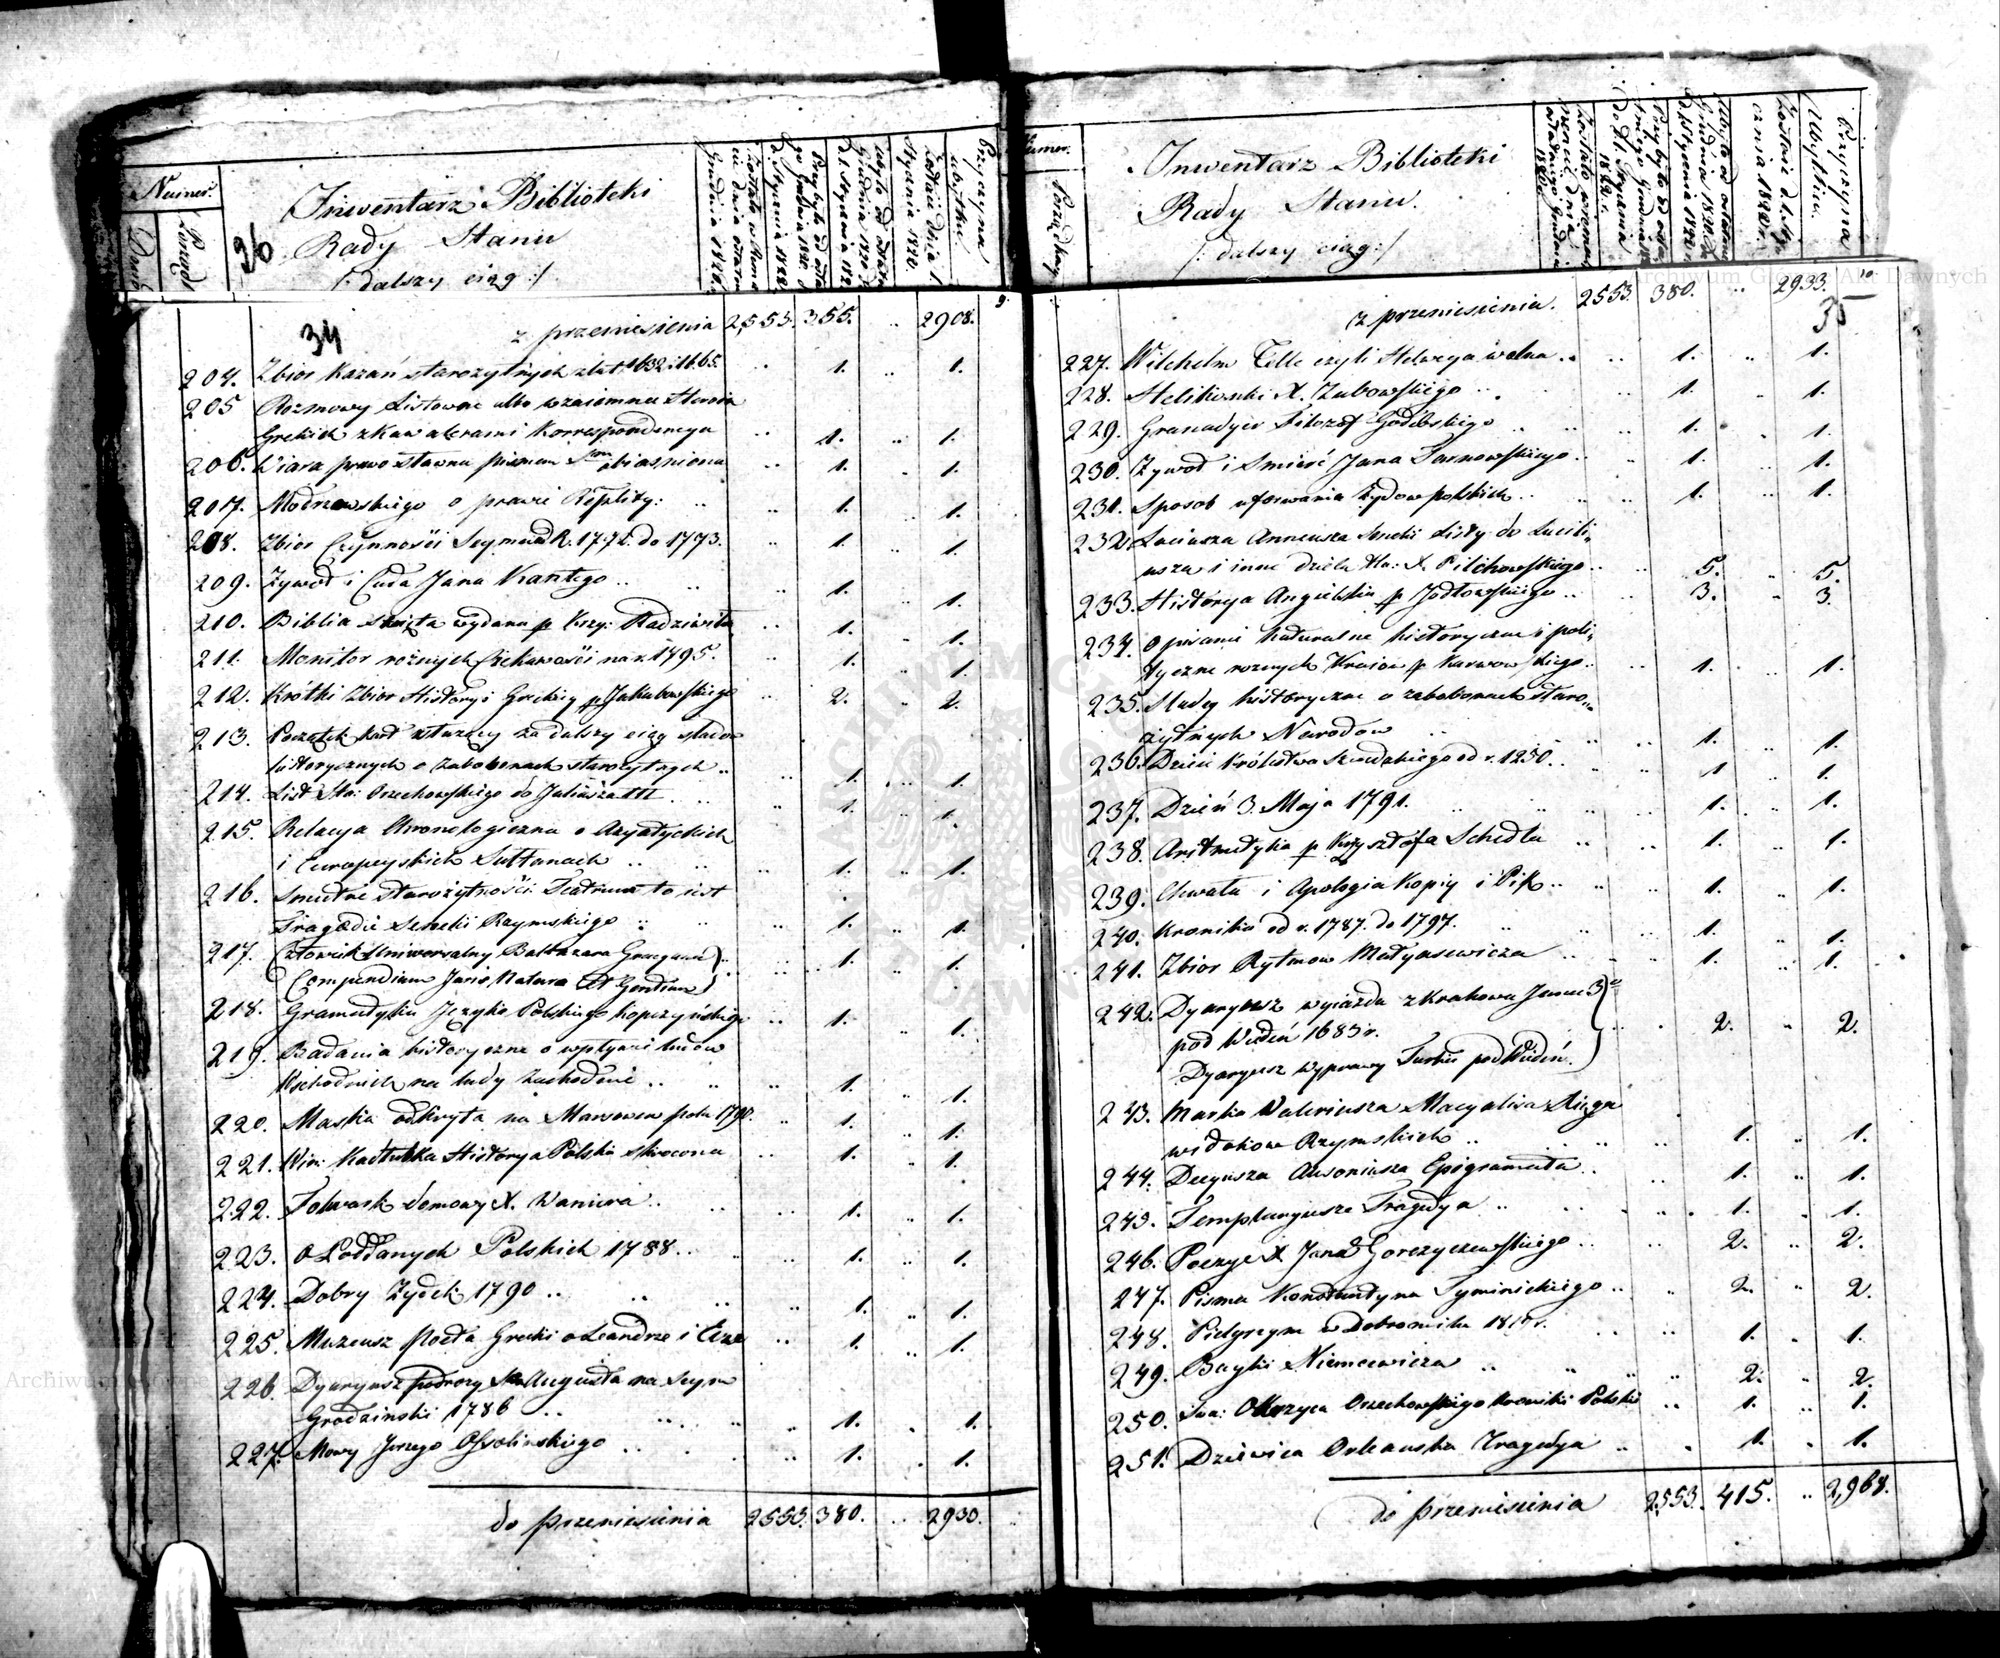 Numer.
Inwentarz Biblioteki
Rady Stanu
/: dalszy ciąg :/
36
34
z przeniesienia 2,553. 355. .. 2908.
204. Zbior Kazań starozytnych z lat 1632 i 1665. .. 1. 1.
205 Rozmowy Listowne albo wzaiemne
Greckich z Kawalerami Korrespondencya .. 1. .. 1.
206. Wiara prawosławna pismem obiasniona .. 1. .. 1.
207. Modrzewskiego o prawie .. 1. .. 1.
208. Zbior Czynności Seymu do 1773. .. 1. .. 1.
209. Zywot i Cuda Jana Kantego .. 1. .. 1.
210. Biblia Swięta wydana p Krzy: Radziwiła .. 1. .. 1.
211. Monitor roźnych Ciekawości na r. 1795. .. 1. .. 1.
212. Krótki Zbior Historyi Greckiey p Jakubowskiego .. 2. .. 2.
213. Początek kart słuzący za dalszy ciąg sladow
historycznych o zabobonach starozytnych .. 1. .. 1.
214. List Sta: Orzechowskiego do Juliusza III .. 1. .. 1.
215. Relacya Chronologiczna o Azyatyckich
i Europeyskich Sułtanach .. 1. .. 1.
216. Smutne starożytności Teatrum to iest
Tragædie Seneki Rzymskiego .. 1. .. 1.
217. Człowiek Uniwersalny Baltazara Gracyana .. 1. .. 1.
Compendium Juris Natura et Gentium
218. Gramatyka Języka Polskiego Kopczyńskiego .. 1. .. 1.
219. Badania historyczne o wpływie ludow
Wschodnich na ludy zachodnie .. 1. .. 1.
220. Maska odkryta na 1790. .. 1. .. 1.
221. Win: Kadłubka Historya Polska skrocona .. 1. .. 1.
222. Folwark domowy X. Waniera .. 1. .. 1.
223. O Poddanych Polskich 1788. .. 1. .. 1.
224. Dobry Zydek 1790 .. 1. .. 1.
225. Muzeusz Poeta Grecki o Leandrze i .. 1. .. 1.
226. Dyaryusz podrozy Sta: Augusta na Seym
Grodzinski 1786 .. 1. .. 1.
227. Mowy Jerzego Ossolinskiego .. 1. .. 1.
do przeniesienia 2553. 380. .. 2930.
Numer.
Porządkowy
Inwentarz Biblioteki
Rady Stanu.
/: dalszy ciąg :/
Przyczyna
Ubytku.
z przeniesienia. 2553. 380. .. 2933.
35
227. Wilchelm Telle czyli Helwecya wolna .. 1. .. 1.
228. X. Zubowskiego .. 1. .. 1.
229. Granadyer Filozof Godebskiego .. 1. .. 1.
230. Zywot i Smierć Jana Tarnowskiego .. 1. .. 1.
231. Sposob uformania Zydow polskich .. 1. .. 1.
232. Luciusza Anneusza Seneki Listy do Lucili„
usza i inne dzieła tła: X. Pilchowskiego .. 5. .. 5.
233. Historya Angielska p Jodłowskiego .. 3. .. 3.
234. Opisanie Naturalne historyczne i poli„
tyczne roznych Kraiow p Karwowskiego .. 1. .. 1.
235. Slady historyczne o zabobonach staro„
żytnych Narodow .. 1. .. 1.
236. Dzieie Królestwa Szwedzkiego od r. 1250. .. 1. .. 1.
237. Dzień 3. Maja 1791. .. 1. .. 1.
238. Aritmetyka p Krzysztofa Schedla .. 1. .. 1.
239. Chwała i Apologia Kopiy i Pik .. 1. .. 1.
240. Kronika od r. 1787. do 1797. .. 1. .. 1.
241. Zbior Rytmow Matyasewicza .. 1. .. 1.
242. Dyaryusz wyiazdu z Krakowa Jana 3go
pod Wiedeń 1683 r. .. 2. .. 2.
Dyaryusz Wyprawy Turków pod Wiedeń.
243. Marka Waleriusza Macyalisa Xięga
widokow Rzymskich .. 1. .. 1.
244. Decyusza Ausoniusza Epigramata .. 1. .. 1.
245. Templaryusze Tragedya .. 1. .. 1.
246. Poezye X Jana Gorczyczewskiego .. 2. .. 2.
247. Pisma Konstantyna Tyminickiego .. 2. .. 2.
248. Pielgrzym w Dobromilu .. 1. .. 1.
249. Bayki Niemcewicza .. 2. .. 2.
250. Okszyca Orzechowskiego Kroniki Polskie .. 1. .. 1.
251. Dziewica Orleanska Tragedya .. 1. .. 1.
do przeniesienia 2,553. 415. .. 2,968.
Archiwum Główne Akt Dawnych